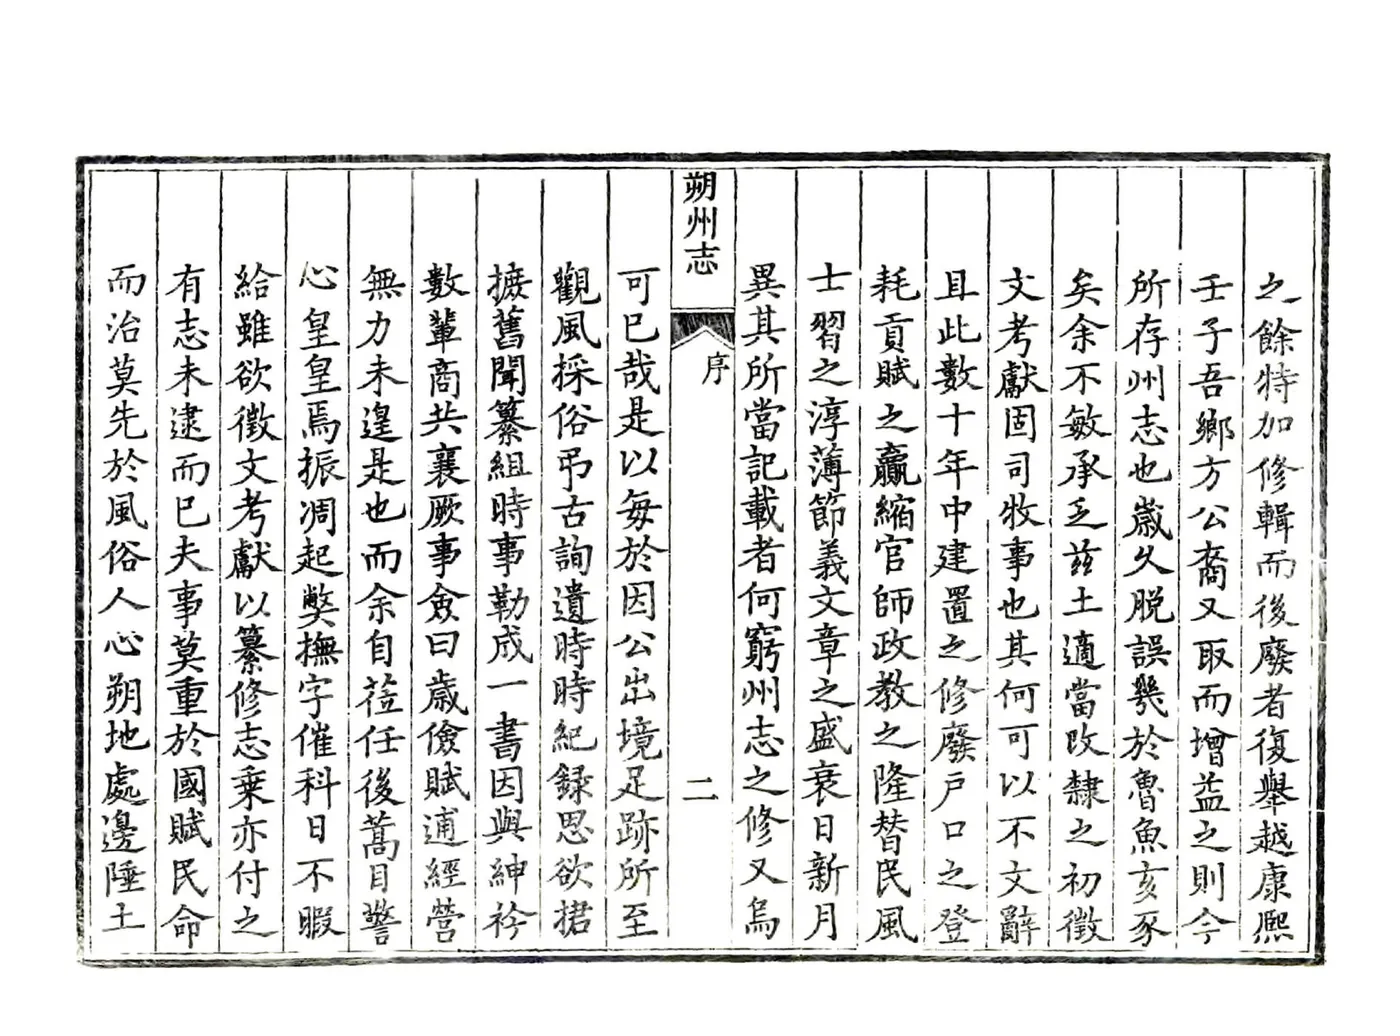 之餘特加修輯而後廢者復舉越康熙
壬子吾鄉方公裔又取而增益之則今
所存州志也歲久脫誤幾於魯魚亥豕
矣余不敏承乏茲土適當改隸之初徵
文考獻固司牧事也其何可以不文辭
且此數十年中建置之修廢戶口之登
耗貢賦之贏縮官師政教之隆替民風
士習之淳薄節義文章之盛衰日新月
異其所當記載者何窮州志之修又烏
朔州志
序
二
可已哉是以每於因公出境足跡所至
觀風採俗弔古詢遺時時紀録思欲捃
摭舊聞纂組時事勒成一書因與紳衿
數輩商共襄厥事僉曰歲儉賦逋經營
無力未遑是也而余自蒞任後蒿目驚
心皇皇焉振凋起弊撫字催科日不暇
給雖欲徵文考獻以纂修志乗亦付之
有志未逮而已夫事莫重於國賦民命
而治莫先於風俗人心朔地處邊陲土